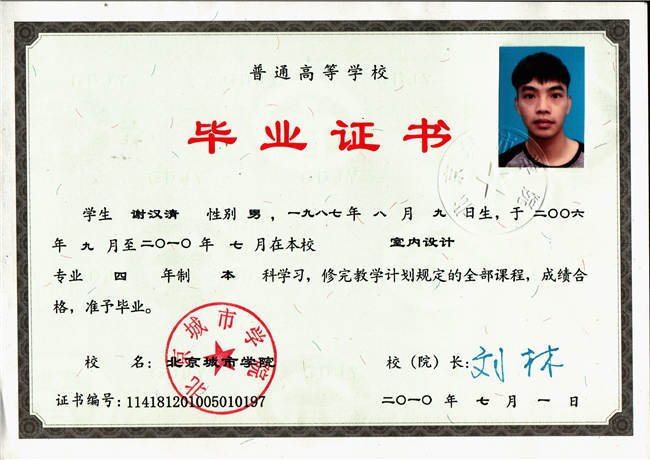 普通高等学校
毕业证书
学生 谢汉清 性别 男 ，一九八七年 八 月 九 日生，于 二〇〇六
年 九 月至二〇一〇 年 七 月在本校 室内设计
专业 四 年制 本 科学习，修完教学计划规定的全部课程，成绩合
格，准予毕业。
北京城市学院
校 名：北京城市学院 校（院）长：刘林
证书编号：114181201005010197 二〇一〇 年 七 月 一 日